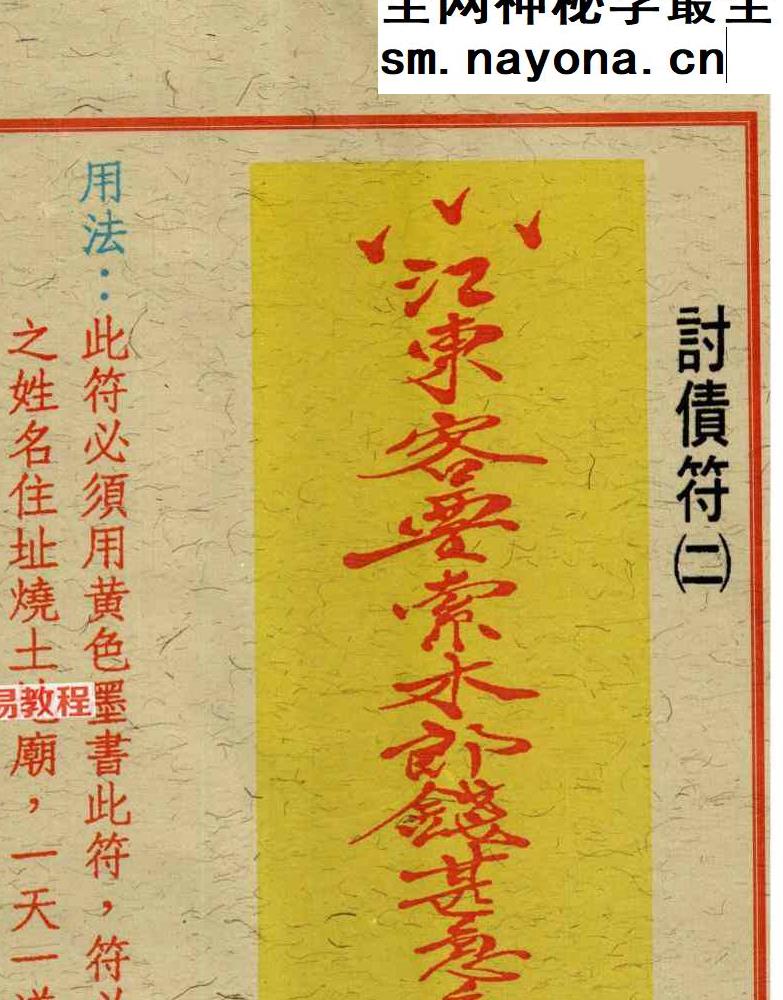 sm.nayona.cn
討債符㈡
江東客要索水郎錢甚急
用法：此符必須用黄色墨書此符，符
之姓名住址燒土廟，一天一道
易教程